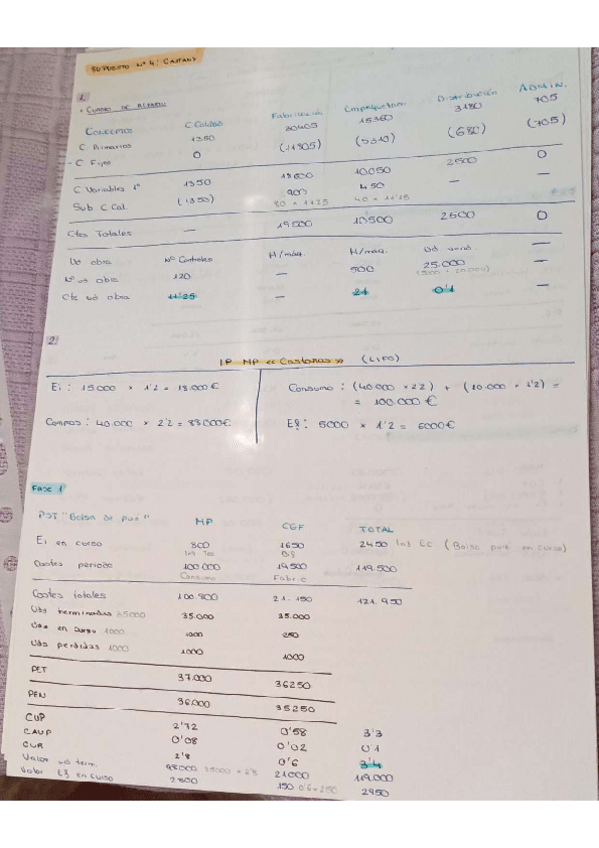 SUPUESTO Nº 4: CASTAN
1.
• CUADRO DE REPARTO
CONCEPTOS C Calidad Fabricación Empaquetam Distribución ADMIN.
C Primarios 1350 30405 15360 3180 705
- C Fijos 0 (11805) (5310) (680) (705)
C Variables 1º 1350 18600 10050 2500 0
Sub C Cal (1350) 900 450 — —
80 x 11'25 40 x 11'25
Ctes Totales — 19500 10500 2500 0
Ud obra Nº Controles H/máq. H/máq. Ud vend. —
Nº ud obra 120 — 500 25.000 —
Cte ud obra 11'25 — 21 0'1 —
2.
I.P MP «Castanas» (LIFO)
Ei: 15.000 x 1'2 = 18.000€
Consumo: (40.000 x 2'2) + (10.000 x 1'2) =
= 100.000 €
Compras: 40.000 x 2'2 = 88000€
Ef: 5000 x 1'2 = 6000€
FASE 1
PST "Bolsa de puré" MP CGF TOTAL
Ei en curso 800 1650 2450 Inf Ec (Bolsa puré en curso)
Costes periodo 100.000 19500 119.500
Consumo Fabric
Costes totales 100.800 21.150 121.950
Uds terminadas 35000 35.000 35.000
Uds en curso 1000 1000 250
Uds perdidas 1000 1000 1000
PET 37.000 36250
PEN 36.000 35250
CUP 2'72 0'58 3'3
CAUP 0'08 0'02 0'1
CUR 2'8 0'6 3'4
Valor ud term. 98000 35000 x 2'8 21000 119.000
Valor Ef en curso 2800 150 0'6 x 250 2950